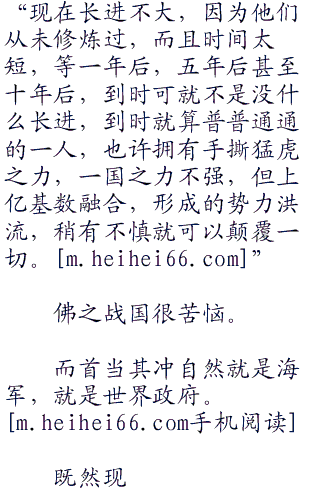 “现在长进不大，因为他们
从未修炼过，而且时间太
短，等一年后，五年后甚至
十年后，到时可就不是没什
么长进，到时就算普普通通
的一人，也许拥有手撕猛虎
之力，一国之力不强，但上
亿基数融合，形成的势力洪
流，稍有不慎就可以颠覆一
切。[m.heihei66.com]”
佛之战国很苦恼。
而首当其冲自然就是海
军，就是世界政府。
[m.heihei66.com手机阅读]
既然现